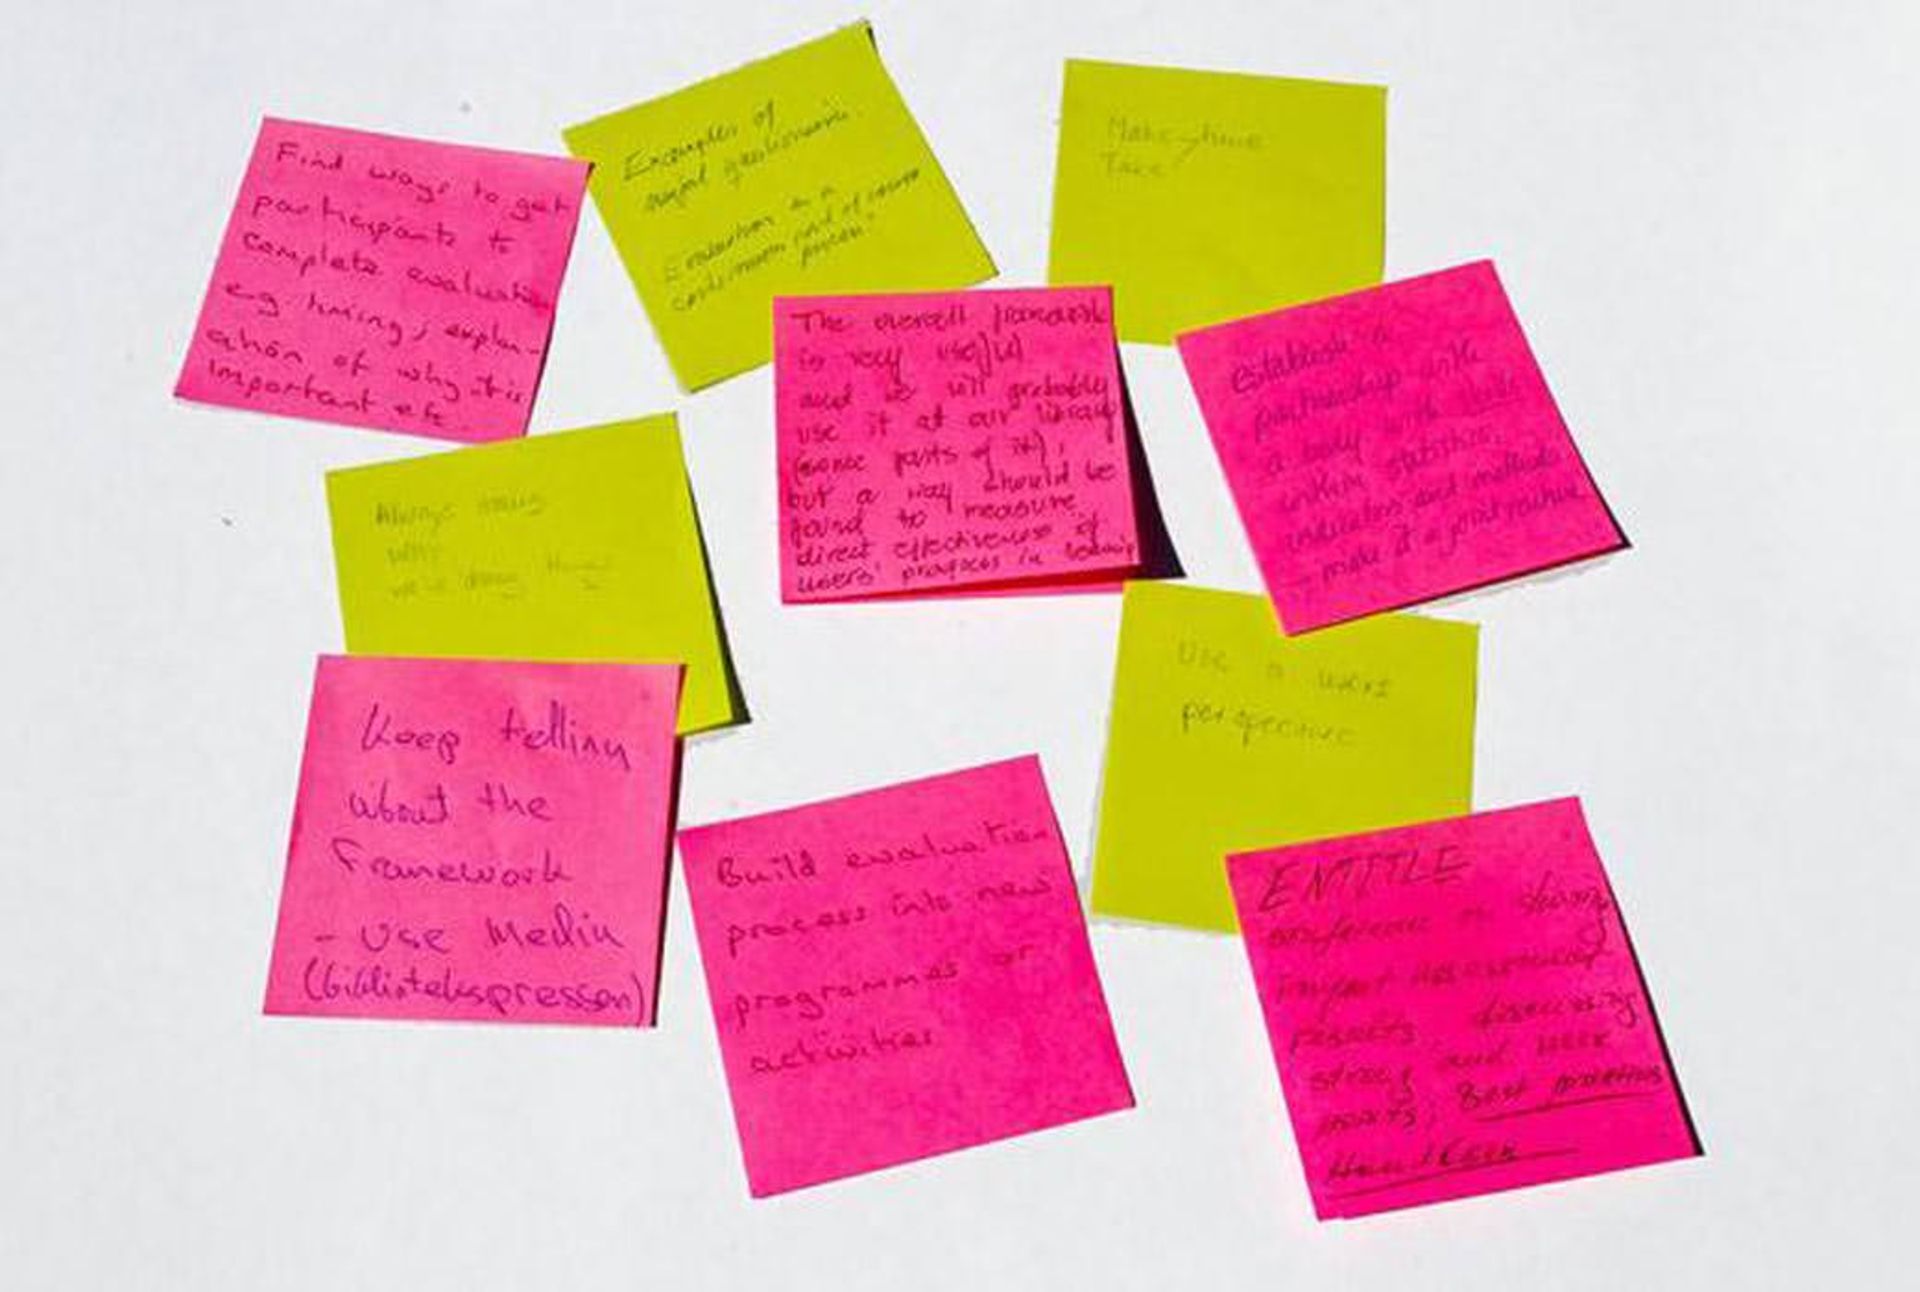 Find ways to get
participants to
complete evaluation
eg timing, explan-
ation of why it is
important etc.
Examples of
Evaluation is a
continuous
Make time
Take
The overall framework
is very useful
and we will probably
use it at our library
(some parts of it),
but a way should be
found to measure
direct effectiveness of
users' progress in learning
Establish a
partnership with
a body with
within statistics,
indicators and methods
- make it a joint venture
Always
why
we're doing
Keep telling
about the
Framework
- Use Media
(bibliotekspressen)
Use a users
perspective
Build evaluation
process into new
programmes or
activities
ENTITLE
conference on sharing
impact assessment
results, discussing
strong and weak
points, Best practice
Handbook